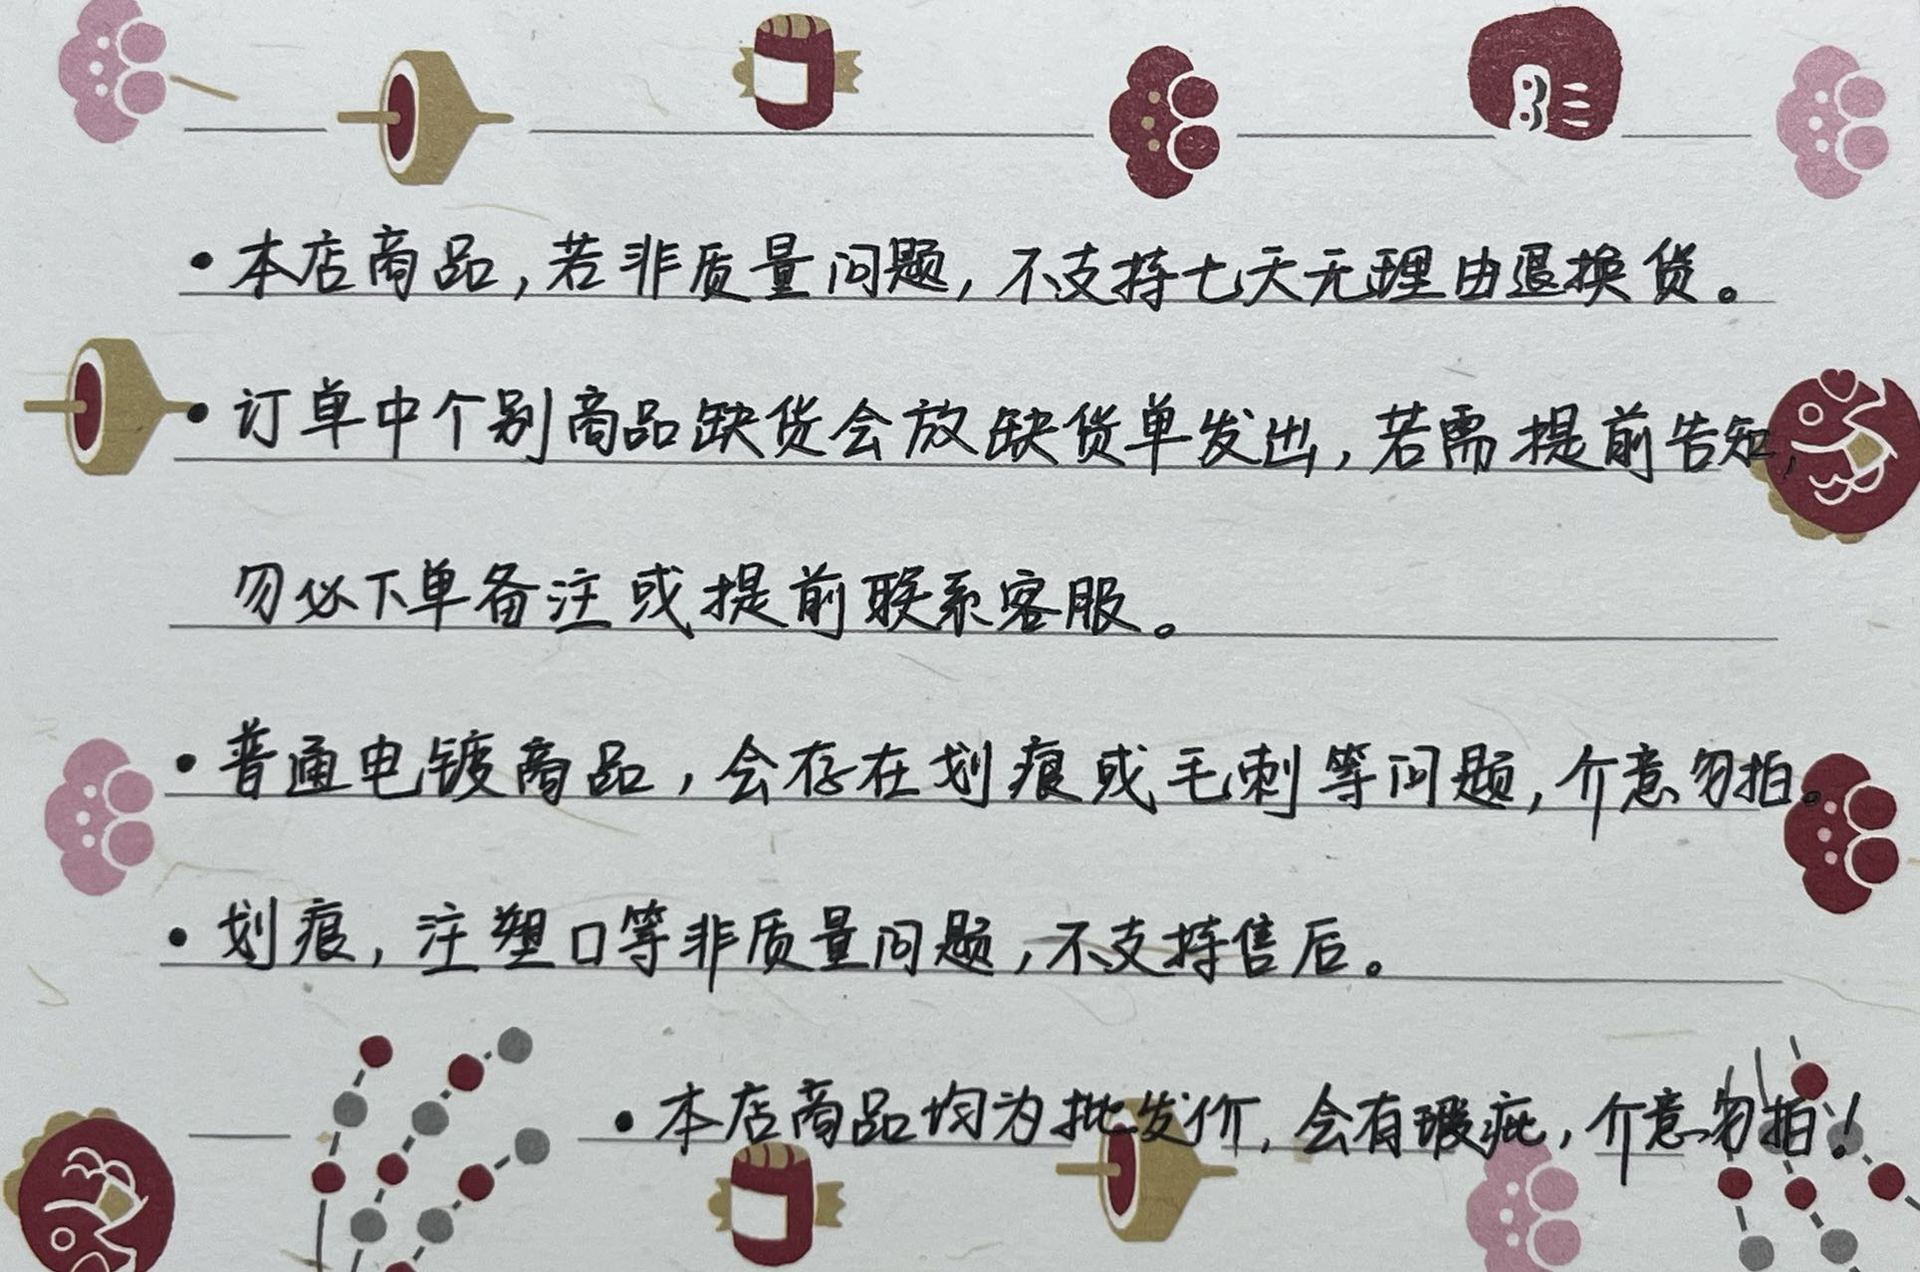 •本店商品,若非质量问题,不支持七天无理由退换货。
•订单中个别商品缺货会放缺货单发出,若需提前告知,
勿必下单备注或提前联系客服。
•普通电镀商品,会存在划痕或毛刺等问题,介意勿拍。
•划痕,注塑口等非质量问题,不支持售后。
•本店商品均为批发价,会有瑕疵,介意勿拍!